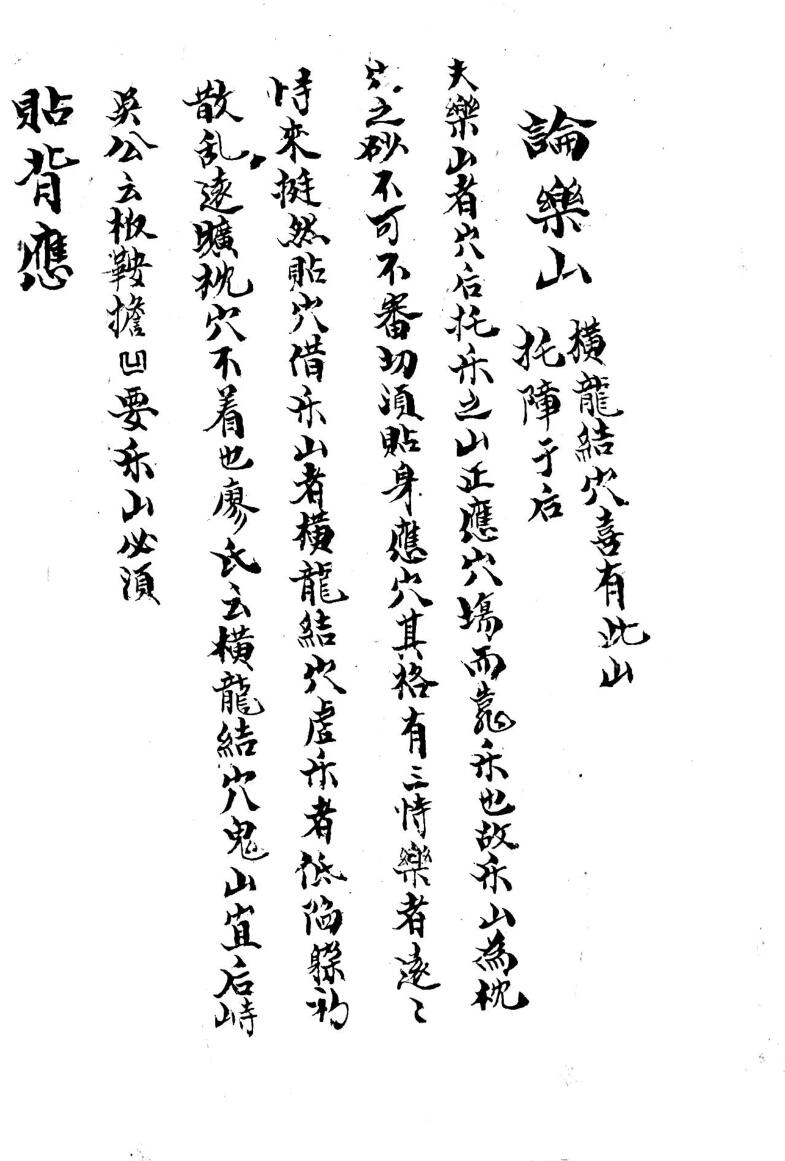 論樂山
橫龍結穴喜有此山
托障于后
夫樂山者穴后托乐之山正應穴塲而靠乐也故乐山為枕
穴之砂不可不審切須貼身應穴其格有三恃樂者遠〻
恃來挺然貼穴借乐山者橫龍結穴虛乐者低陷
散乱遠曠枕穴不着也廖氏云橫龍結穴鬼山宜后峙
吳公云鞍擔凹要乐山必須
貼背應